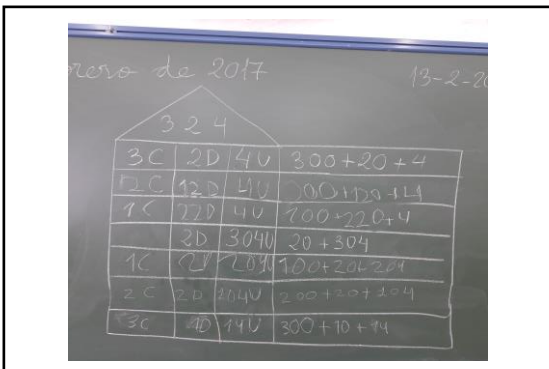 nero de 2017 13-2-20
3 2 4
3C 2D 4U 300+20+4
2C 12D 4U 200+120+4
1C 22D 4U 100+220+4
2D 304U 20+304
1C 2D 204U 100+20+204
2C 2D 104U 200+20+104
3C 1D 14U 300+10+14